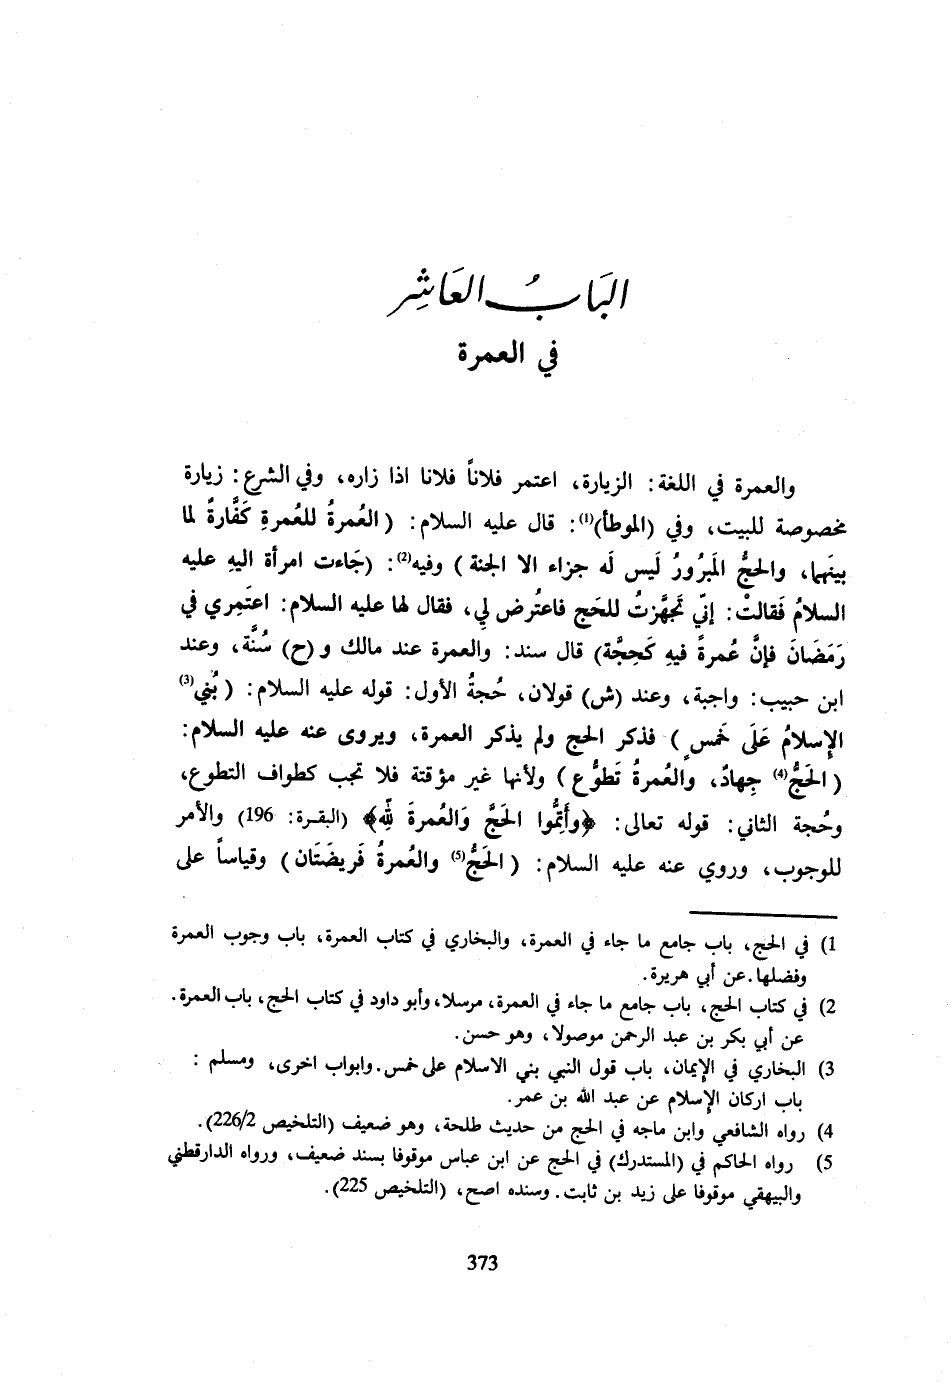 البَابُ العَاشِر
في العمرة
والعمرة في اللغة: الزيارة، اعتمر فلاناً فلانا اذا زاره، وفي الشرع: زيارة
مخصوصة للبيت، وفي (الموطأ)(1): قال عليه السلام: (العُمرةُ للعُمرةِ كَفَّارةٌ لما
بينَهما، والحجُّ المَبرُورُ لَيس لَه جزاء الا الجنة) وفيه(2): (جَاءت امرأة اليهِ عليه
السلامُ فَقالتْ: إنّي تَجهَّزتُ للحَج فاعتُرض لِي، فقال لها عليه السلام: اعتَمِري في
رَمَضَانَ فإنَّ عُمرةً فيهِ كَحِجَّة) قال سند: والعمرة عند مالك و (ح) سُنَّة، وعند
ابن حبيب: واجبة، وعند (ش) قولان، حُجةُ الأول: قوله عليه السلام: (بُني(3)
الإسلامُ عَلَى خَمسٍ) فذكر الحج ولم يذكر العمرة، ويروى عنه عليه السلام:
(الحَجُّ(4) جِهادٌ، والعُمرةُ تَطوُّع) ولأنها غير مؤقتة فلا تجب كطواف التطوع،
وحُجة الثاني: قوله تعالى: ﴿وأَتِمُّوا الحَجَّ وَالعُمرةَ لِلّهِ﴾ (البقـرة: 196) والأمر
للوجوب، وروي عنه عليه السلام: (الحَجُّ(5) والعُمرةُ فَريضَتَان) وقياساً على
1) في الحج، باب جامع ما جاء في العمرة، والبخاري في كتاب العمرة، باب وجوب العمرة
وفضلها. عن أبي هريرة.
2) في كتاب الحج، باب جامع ما جاء في العمرة، مرسلا، وأبو داود في كتاب الحج، باب العمرة.
عن أبي بكر بن عبد الرحمن موصولا، وهو حسن.
3) البخاري في الإيمان، باب قول النبي بني الاسلام على خمس. وابواب اخرى، ومسلم :
باب اركان الإسلام عن عبد الله بن عمر.
4) رواه الشافعي وابن ماجه في الحج من حديث طلحة، وهو ضعيف (التلخيص 226/2).
5) رواه الحاكم في (المستدرك) في الحج عن ابن عباس موقوفا بسند ضعيف، ورواه الدارقطني
والبيهقي موقوفا على زيد بن ثابت. وسنده اصح، (التلخيص 225).
373